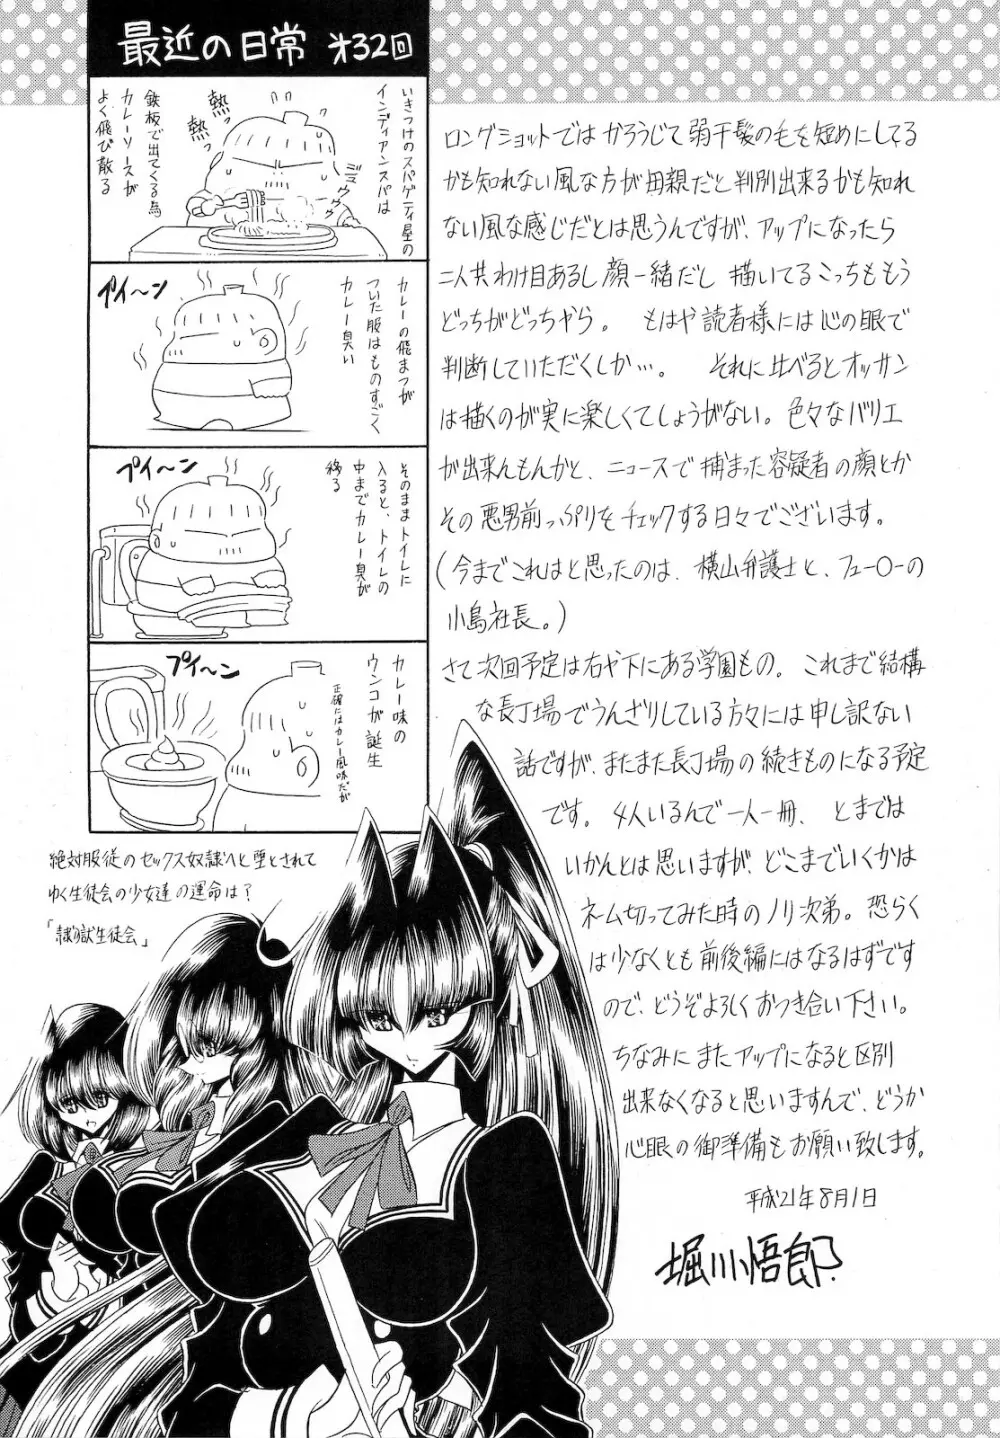 最近の日常 オ32回
いきつけのスパゲティ屋の
インディアンスパは
鉄板で出てくる為
カレーソースが
よく飛び散る
熱っ
熱っ
カレーの飛まつが
ついた服はものすごく
カレー臭い
プイ〜ン
そのままトイレに
入ると、トイレの
中までカレー臭が
移る
プイ〜ン
カレー味の
ウンコが誕生
正確にはカレー風味だが
プイ〜ン
ロングショットではかろうじて弱干髪の毛を短めにしてる
かも知れない風な方が母親だと判別出来るかも知れ
ない風な感じだとは思うんですが、アップになったら
二人共わけ目あるし顔一緒だし描いてるこっちももう
どっちがどっちやら。もはや読者様には心の眼で
判断していただくしか…。それに比べるとオッサン
は描くのが実に楽しくてしょうがない。色々なバリエ
が出来んもんかと、ニュースで捕まった容疑者の顔とか
その悪男前っぷりをチェックする日々でございます。
(今までこれはと思ったのは、横山弁護士と、フューO-の
小島社長。)
さて次回予定は右や下にある学園もの。これまで結構
な長丁場でうんざりしている方々には申し訳ない
話ですが、またまた長丁場の続きものになる予定
です。4人いるんで一人一冊、とまでは
いかんとは思いますが、どこまでいくかは
ネーム切ってみた時のノリ次弟。恐らく
は少なくとも前後編にはなるはずです
ので、どうぞよろしくおつき合い下さい。
ちなみにまたアップになると区別
出来なくなると思いますんで、どうか
心眼の御準備もお願い致します。
平成21年8月1日
堀川悟郎